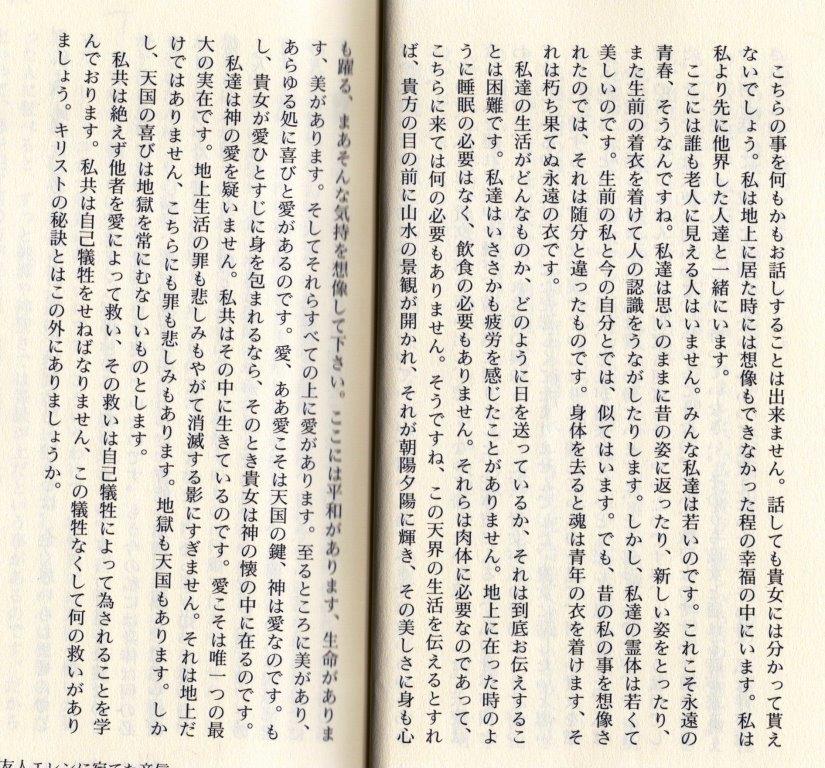 こちらの事を何もかもお話しすることは出来ません。話しても貴女には分かって貰え
ないでしょう。私は地上に居た時には想像もできなかった程の幸福の中にいます。私は
私より先に他界した人達と一緒にいます。
ここには誰も老人に見える人はいません。みんな私達は若いのです。これこそ永遠の
青春、そうなんですね。私達は思いのままに昔の姿に返ったり、新しい姿をとったり、
また生前の着衣を着けて人の認識をうながしたりします。しかし、私達の霊体は若くて
美しいのです。生前の私と今の自分とでは、似てはいます。でも、昔の私の事を想像さ
れたのでは、それは随分と違ったものです。身体を去ると魂は青年の衣を着けます、そ
れは朽ち果てぬ永遠の衣です。
私達の生活がどんなものか、どのように日を送っているか、それは到底お伝えするこ
とは困難です。私達はいささかも疲労を感じたことがありません。地上に在った時のよ
うに睡眠の必要はなく、飲食の必要もありません。それらは肉体に必要なのであって、
こちらに来ては何の必要もありません。そうですね、この天界の生活を伝えるとすれ
ば、貴方の目の前に山水の景観が開かれ、それが朝陽夕陽に輝き、その美しさに身も心
も躍る、まあそんな気持を想像して下さい。ここには平和があります、生命がありま
す、美があります。そしてそれらすべての上に愛があります。至るところに美があり、
あらゆる処に喜びと愛があるのです。愛、ああ愛こそは天国の鍵、神は愛なのです。も
し、貴女が愛ひとすじに身を包まれるなら、そのとき貴女は神の懐の中に在るのです。
私達は神の愛を疑いません。私共はその中に生きているのです。愛こそは唯一つの最
大の実在です。地上生活の罪も悲しみもやがて消滅する影にすぎません。それは地上だ
けではありません、こちらにも罪も悲しみもあります。地獄も天国もあります。しか
し、天国の喜びは地獄を常にむなしいものとします。
私共は絶えず他者を愛によって救い、その救いは自己犠牲によって為されることを学
んでおります。私共は自己犠牲をせねばなりません、この犠牲なくして何の救いがあり
ましょう。キリストの秘訣とはこの外にありましょうか。
友人エレンに宛てた音信